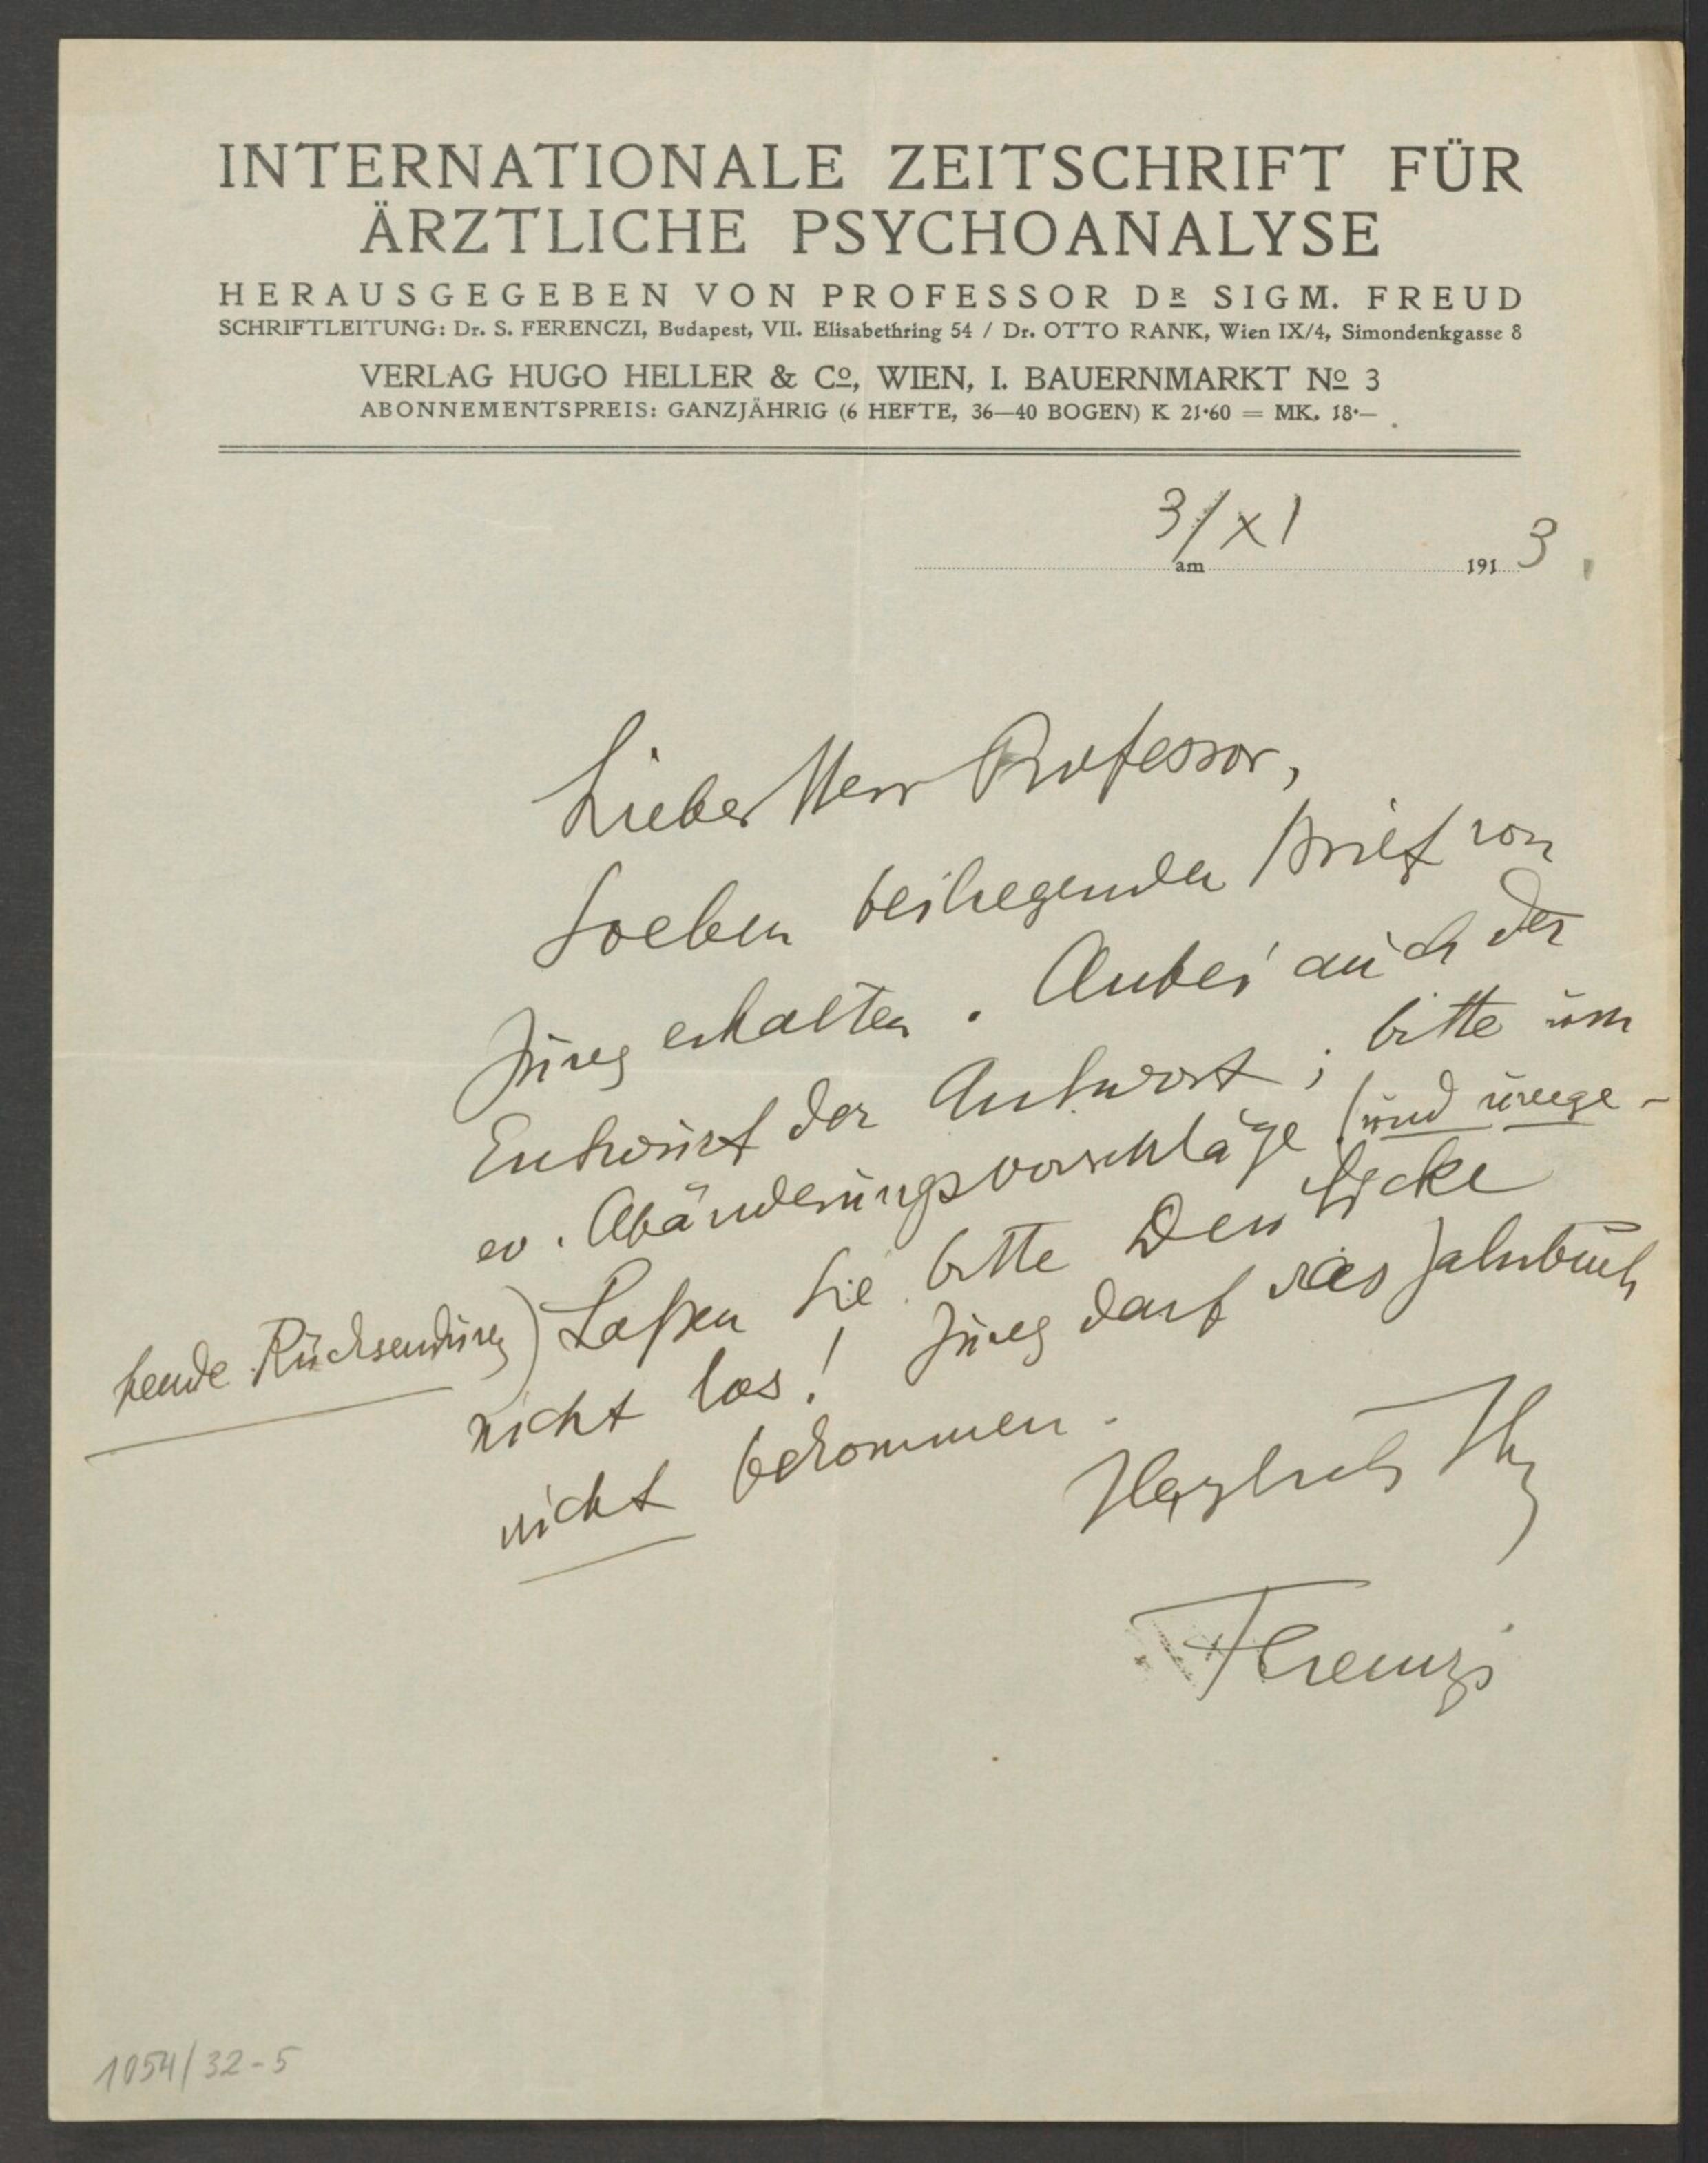 INTERNATIONALE ZEITSCHRIFT FÜR
ÄRZTLICHE PSYCHOANALYSE
HERAUSGEGEBEN VON PROFESSOR DR SIGM. FREUD
SCHRIFTLEITUNG: Dr. S. FERENCZI, Budapest, VII. Elisabethring 54 / Dr. OTTO RANK, Wien IX/4, Simondenkgasse 8
VERLAG HUGO HELLER & Co, WIEN, I. BAUERNMARKT No 3
ABONNEMENTSPREIS: GANZJÄHRIG (6 HEFTE, 36—40 BOGEN) K 21·60 = MK. 18·—
am 3/XI 1913.
Lieber Herr Professor,
Soeben beiliegenden Brief von
Jung erhalten. Anbei auch der
Entwurf der Antwort; bitte um
ev. Abänderungsvorschläge (und umge-
hende Rücksendung) Laßen Sie bitte Deuticke
nicht los! Jung darf das Jahrbuch
nicht bekommen.
Herzlich Ihr
Ferenczi
1054/32-5